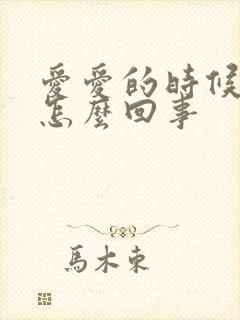 愛愛的時候
怎麼回事
馬木東